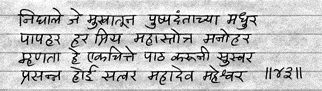 निघाले जे मुखातून पुष्पदंताच्या मधुर
पापहर हर प्रिय महास्तोत्र मनोहर
म्हणता हे एकचित्ते पाठ करूनी सुस्वर
प्रसन्न होई सत्वर महादेव महेश्वर ॥४३॥